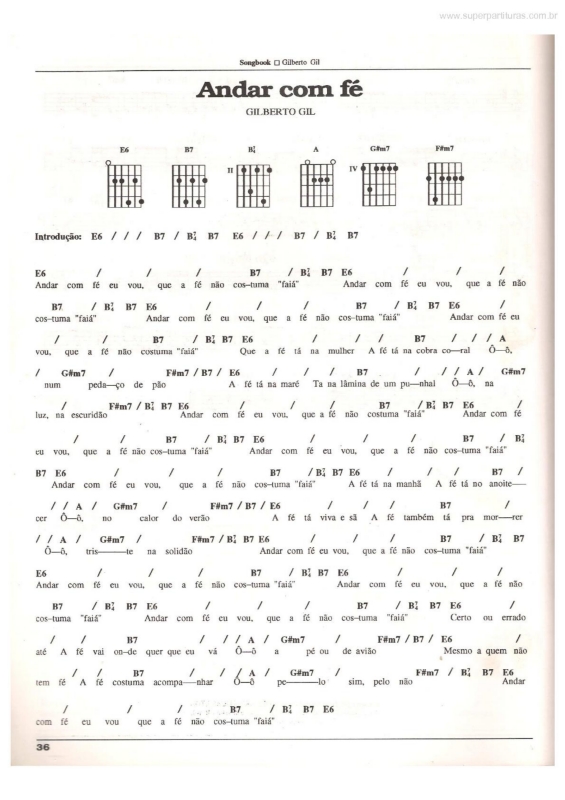 www.superpartituras.com.br
Songbook □ Gilberto Gil
Andar com fé
GILBERTO GIL
E6 B7 B7/4 A G#m7 F#m7
II IV
Introdução: E6 / / / B7 / B7/4 B7 E6 / / / B7 / B7/4 B7
E6 / / / B7 / B7/4 B7 E6 / / /
Andar com fé eu vou, que a fé não cos–tuma "faiá" Andar com fé eu vou, que a fé não
B7 / B7/4 B7 E6 / / / B7 / B7/4 B7 E6 /
cos–tuma "faiá" Andar com fé eu vou, que a fé não cos–tuma "faiá" Andar com fé eu
/ / B7 / B7/4 B7 E6 / / / B7 / / / A
vou, que a fé não costuma "faiá" Que a fé tá na mulher A fé tá na cobra co—ral Ô—ô,
/ G#m7 / F#m7 / B7 / E6 / / / B7 / / / A / G#m7
num peda—ço de pão A fé tá na maré Ta na lâmina de um pu—nhal Ô—ô, na
/ F#m7 / B7/4 B7 E6 / / / B7 / B7/4 B7 E6 /
luz, na escuridão Andar com fé eu vou, que a fé não costuma "faiá" Andar com fé
/ / B7 / B7/4 B7 E6 / / / B7 / B7/4
eu vou, que a fé não cos–tuma "faiá" Andar com fé eu vou, que a fé não cos–tuma "faiá"
B7 E6 / / / B7 / B7/4 B7 E6 / / / B7 /
Andar com fé eu vou, que a fé não cos–tuma "faiá" A fé tá na manhã A fé tá no anoite—
/ / A / G#m7 / F#m7 / B7 / E6 / / / B7 /
cer Ô—ô, no calor do verão A fé tá viva e sã A fé também tá pra mor—rer
/ / A / G#m7 / F#m7 / B7/4 B7 E6 / / / B7 / B7/4 B7
Ô—ô, tris———te na solidão Andar com fé eu vou, que a fé não cos–tuma "faiá"
E6 / / / B7 / B7/4 B7 E6 / / /
Andar com fé eu vou, que a fé não cos–tuma "faiá" Andar com fé eu vou, que a fé não
B7 / B7/4 B7 E6 / / / B7 / B7/4 B7 E6 /
cos–tuma "faiá" Andar com fé eu vou, que a fé não cos–tuma "faiá" Certo ou errado
/ / B7 / / / A / G#m7 / F#m7 / B7 / E6 /
até A fé vai on–de quer que eu vá Ô—ô a pé ou de avião Mesmo a quem não
/ / B7 / / / A / G#m7 / F#m7 / B7/4 B7 E6
tem fé A fé costuma acompa—nhar Ô—ô pe———lo sim, pelo não Andar
/ / / B7 / B7/4 B7 E6
com fé eu vou que a fé não cos–tuma "faiá"
36